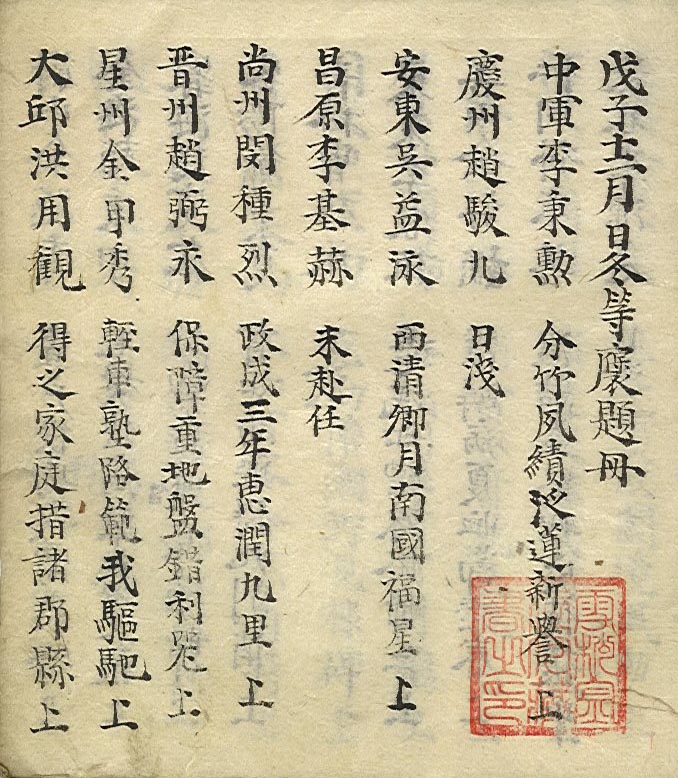 戊子十二月日冬等褒題冊
中軍李秉勲 分竹夙績泛蓮新譽 上
慶州趙駿九 日淺
安東吳益泳 西清卿月南國福星 上
昌原李基赫 未赴任
尚州閔種烈 政成三年惠潤九里 上
晋州趙弼永 保障重地盤錯利器 上
星州金甲秀 輕車熟路範我驅馳 上
大邱洪用觀 得之家庭措諸郡縣 上